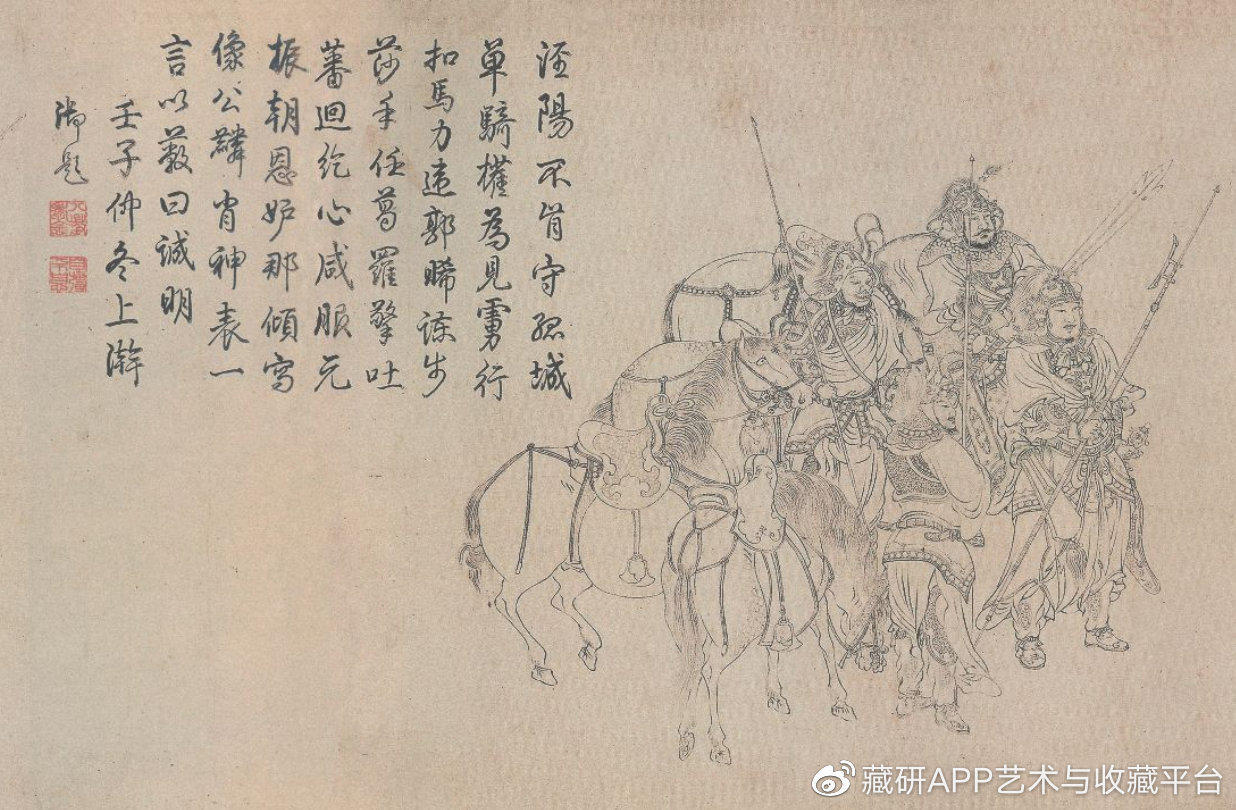 涇陽不肯守孤城
單騎權為見虜行
扣馬力違郭晞諫步
莎手任葛羅擎吐
蕃迴紇心咸服元
振朝恩妒那傾寫
像公麟肖神表一
言以蔽曰誠明
壬子仲冬上澣
御題
藏研APP艺术与收藏平台